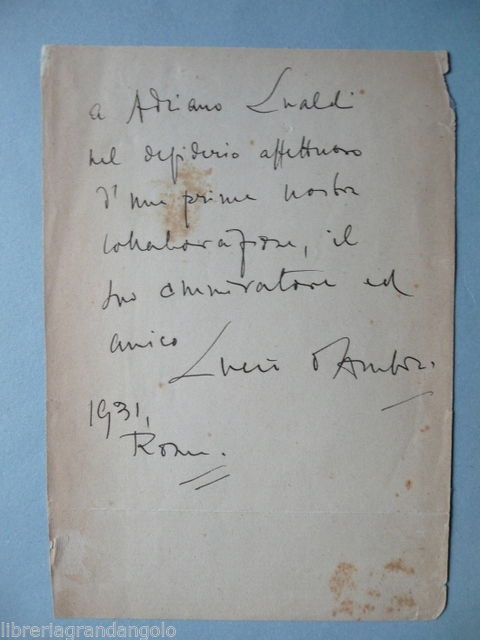 a Adriano Lualdi
nel desiderio affettuoso
d'una prima nostra
collaborazione, il
suo ammiratore ed
amico Lucio d'Ambra.
1931,
Roma.
libreriagrandangolo